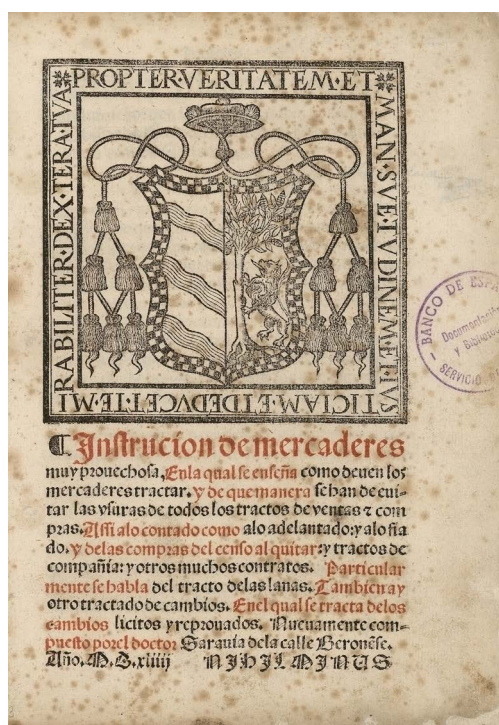 PROPTER·VERITATEM·ET·
MAN·SVETVDINEM·ET·IVS
TICIAM·ET·DEDVCET·TE·MI
RABILITER·DEX·TERA·TVA
BANCO DE ESPA
Documentación
y Biblioteca
SERVICIO
¶ Instrucion de mercaderes
muy prouechosa, Enla qual se enseña como deuen los
mercaderes tractar. y de que manera se han de eui-
tar las vsuras de todos los tractos de ventas ⁊ com
pras. Assi alo contado como alo adelantado: y alo fia
do. y delas compras del censo al quitar: y tractos de
compañia: y otros muchos contratos. Particular
mente se habla del tracto delas lanas. Tambien ay
otro tractado de cambios. Enel qual se tracta delos
cambios licitos y reprouados. Nueuamente com-
puesto por el doctor Sarauia dela calle Beronẽse.
Año. M. D. xliiij NIHIL MINUS